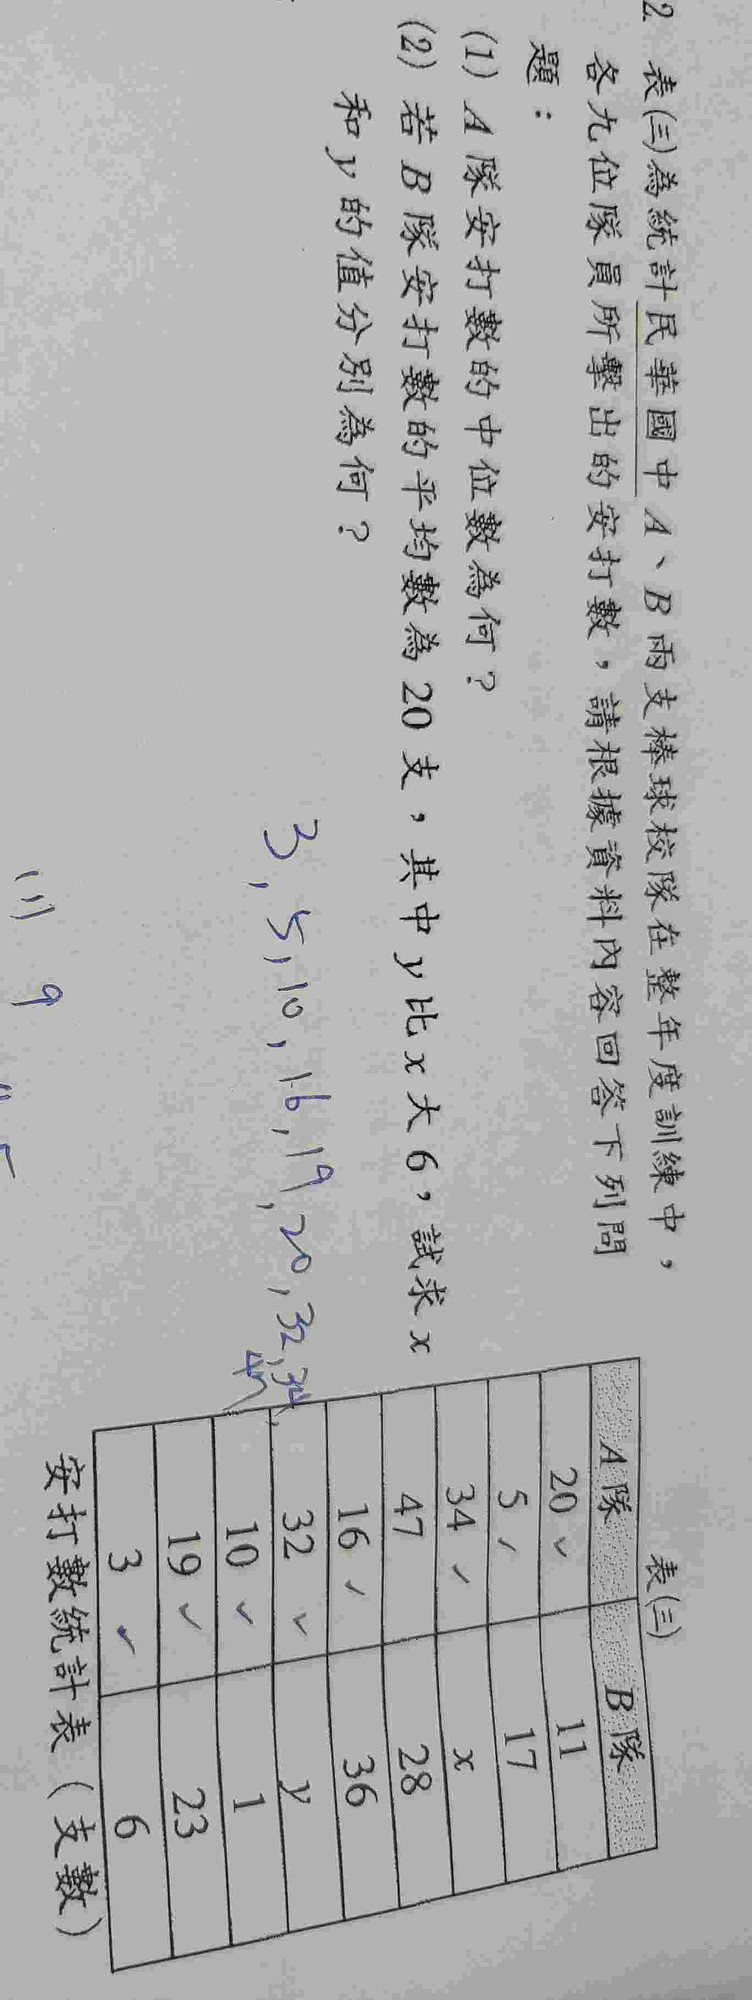 2. 表(三)為統計民華國中A、B兩支棒球校隊在整年度訓練中，
各九位隊員所擊出的安打數，請根據資料內容回答下列問
題：
(1) A隊安打數的中位數為何？
(2) 若B隊安打數的平均數為20支，其中y比x大6，試求x
和y的值分別為何？
3, 5, 10, 16, 19, 20, 32, 34,
47
(1) 9
表(三)
A隊 B隊
20 ✓ 11
5 ✓ 17
34 ✓ x
47 28
16 ✓ 36
32 ✓ y
10 ✓ 1
19 ✓ 23
3 ✓ 6
安打數統計表（支數）